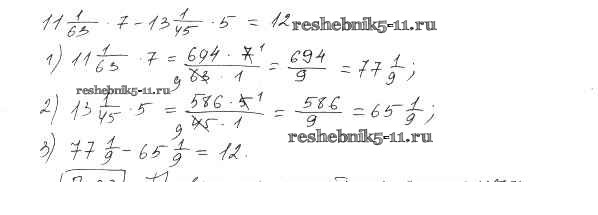 11 1/63 · 7 - 13 1/45 · 5 = 12 reshebnik5-11.ru
1) 11 1/63 · 7 = 694 · 7 1 / 9 63 · 1 = 694/9 = 77 1/9 ;
reshebnik5-11.ru
2) 13 1/45 · 5 = 586 · 5 1 / 9 45 · 1 = 586/9 = 65 1/9 ;
reshebnik5-11.ru
3) 77 1/9 - 65 1/9 = 12.